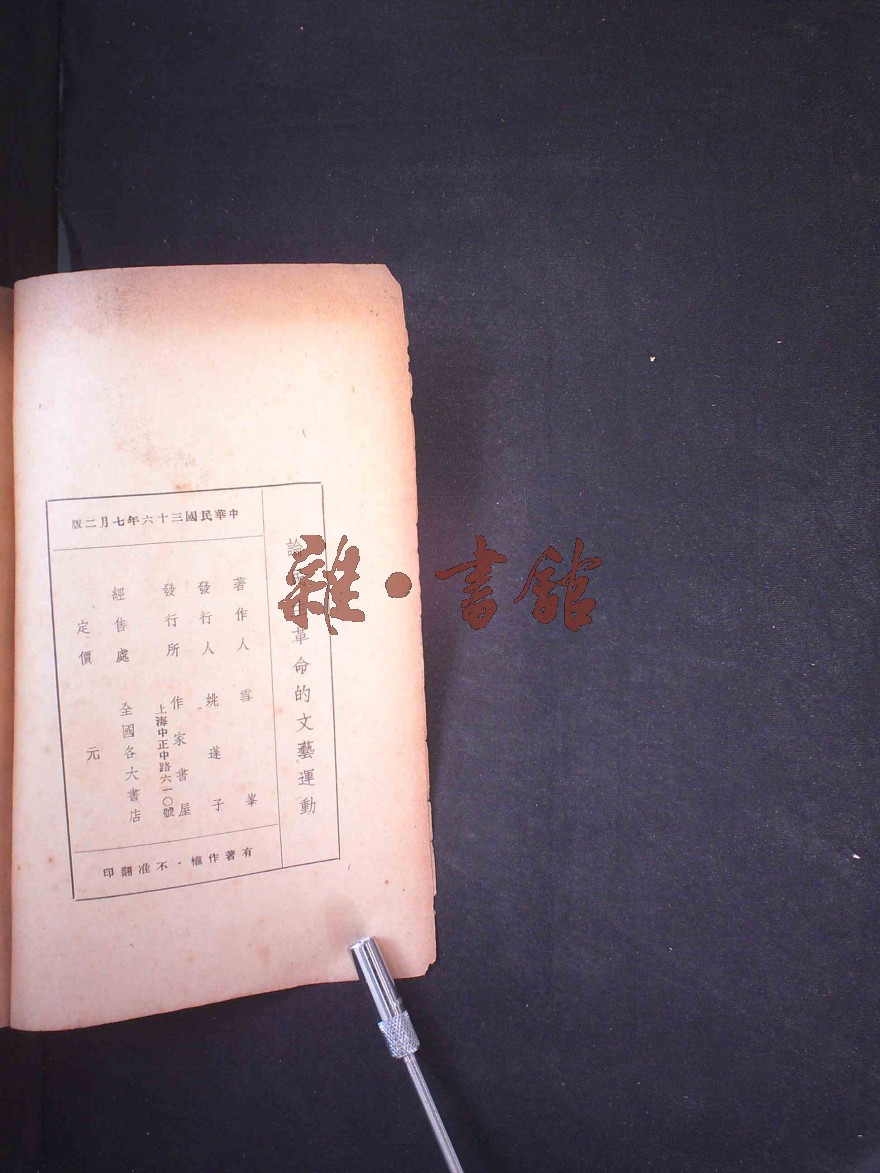 論革命的文藝運動
中華民國三十六年七月二版
著作人 雪峯
發行人 姚蓬子
發行所 作家書屋
上海中正中路六一〇號
經售處 全國各大書店
定價 元
有著作權・不准翻印
雜・書館